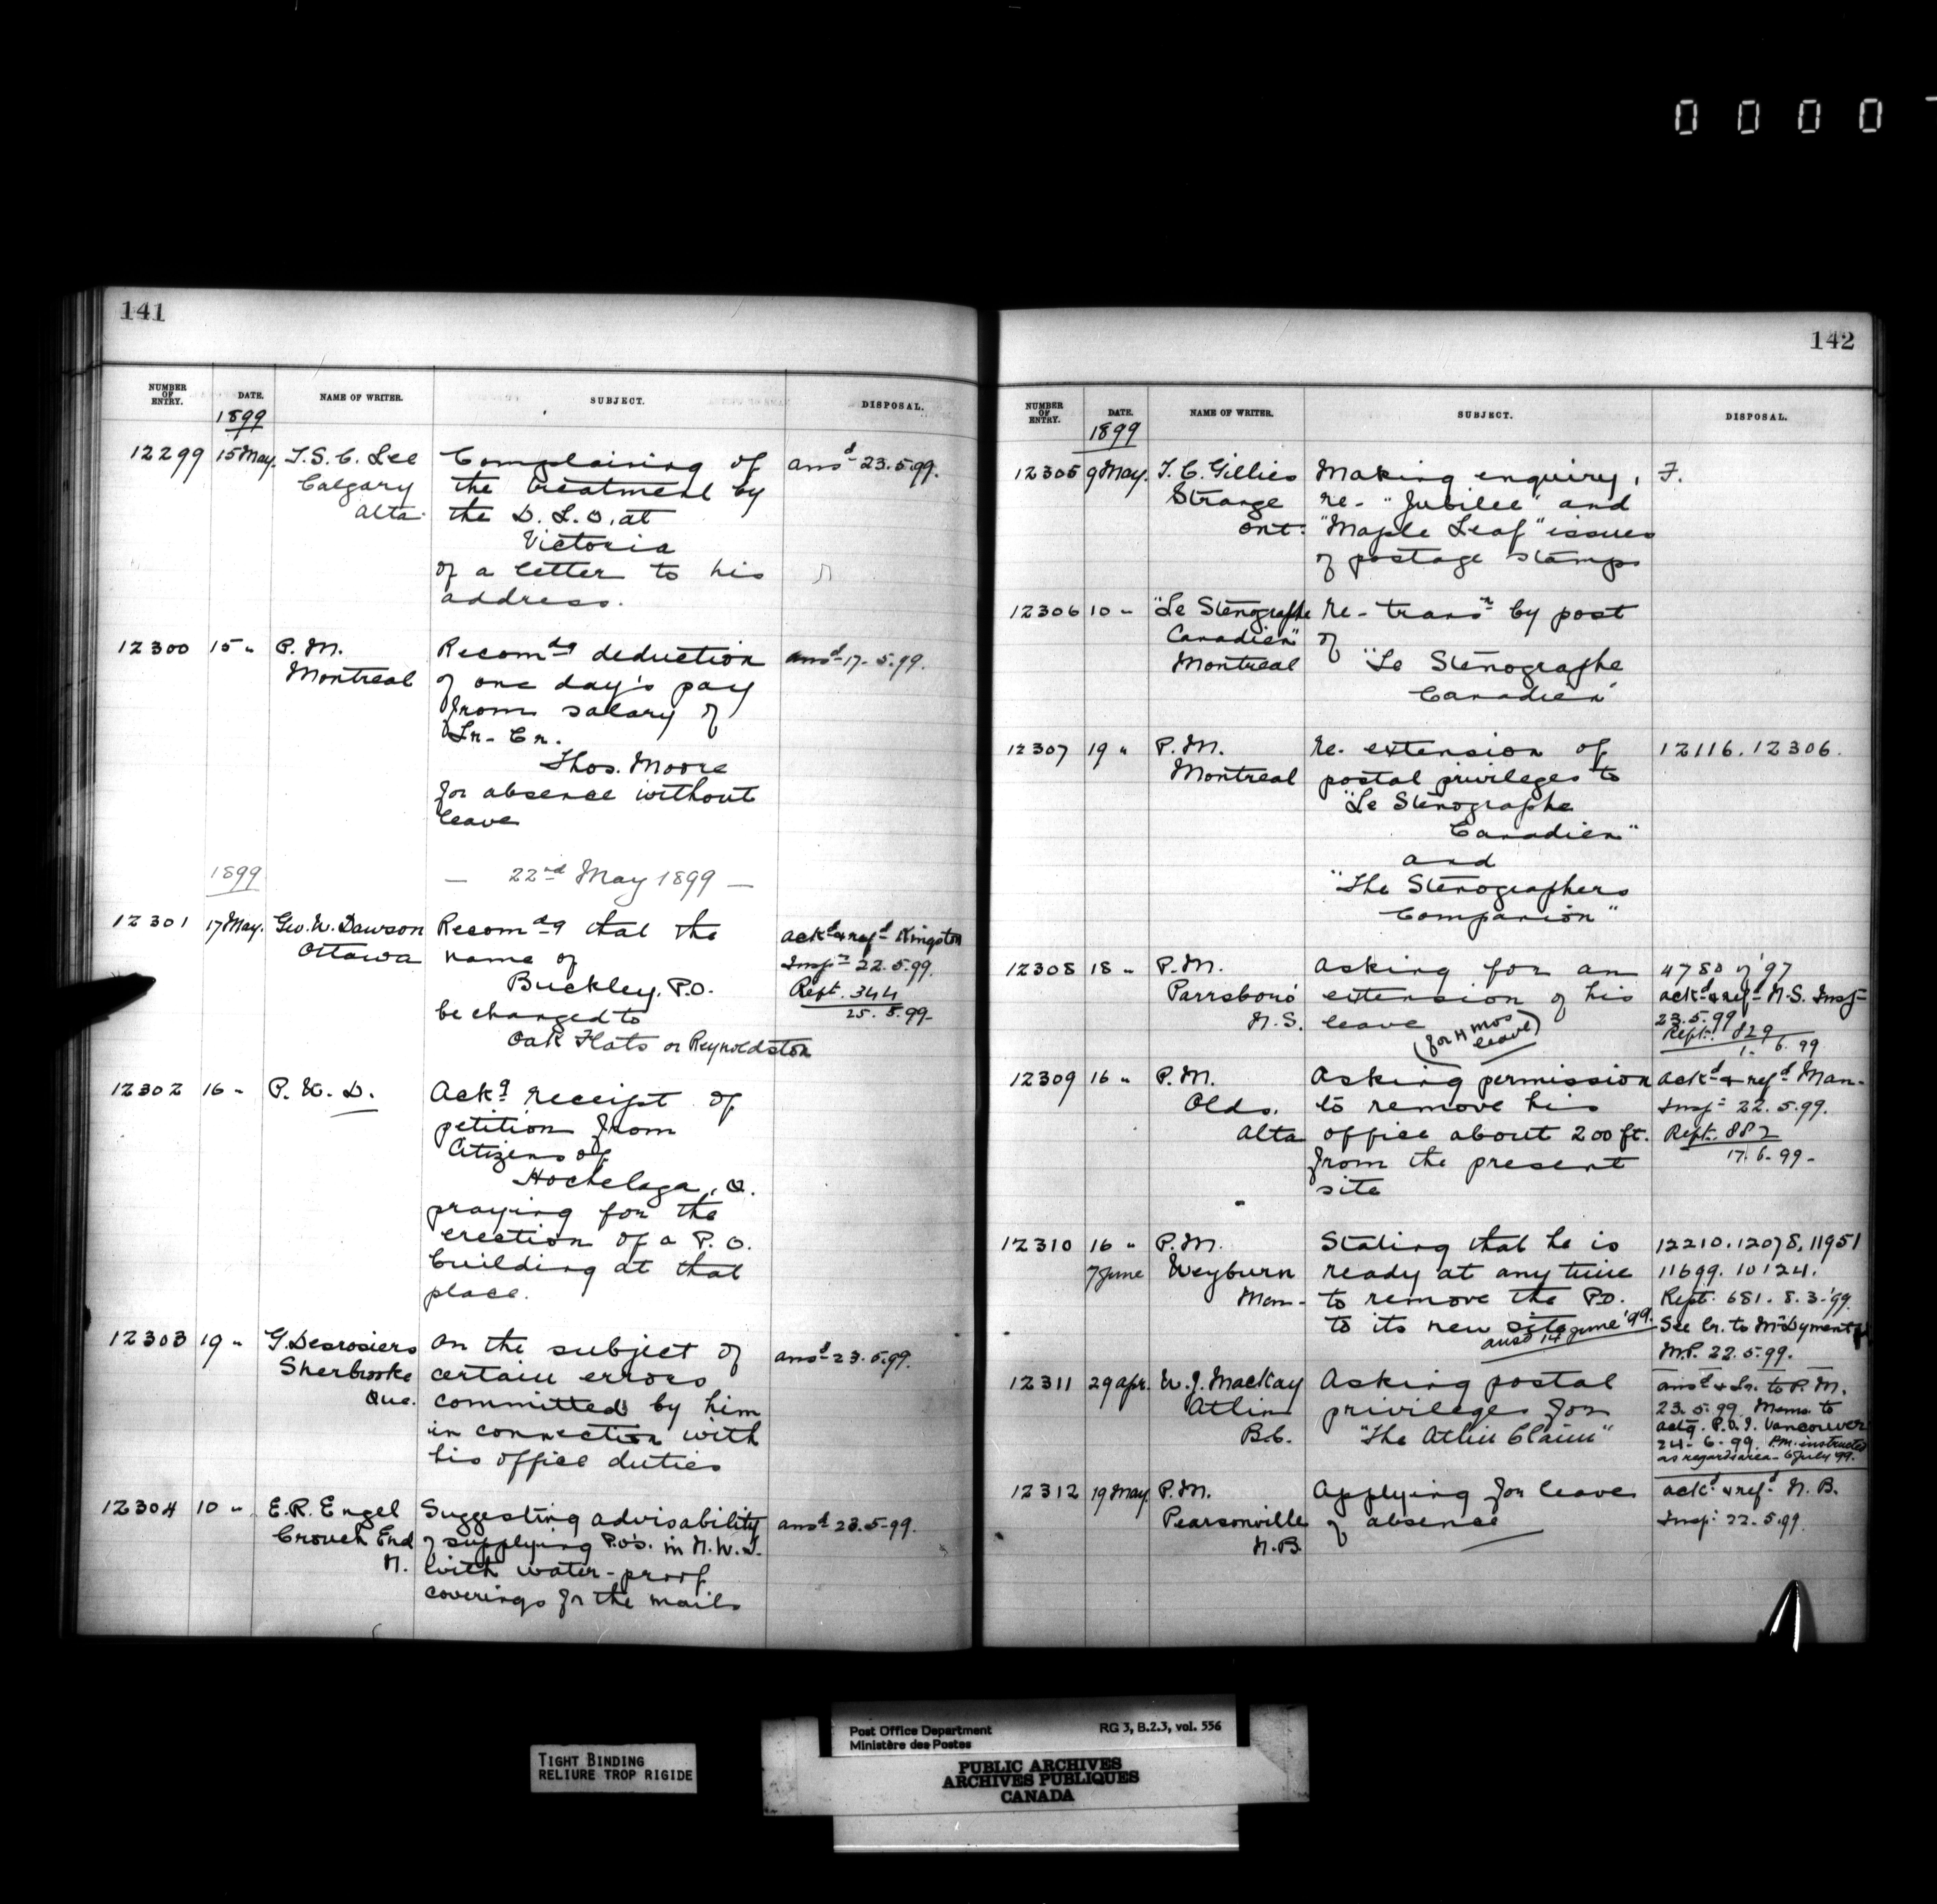 0 0 0 0
141
NUMBER OF ENTRY. DATE. NAME OF WRITER. SUBJECT. DISPOSAL.
1899
12299 15 May. T.S.C. Lee Complaining of ansd 23.5.99.
Calgary the treatment by
Alta. the D.L.O. at
Victoria
of a letter to his
address.
12300 15 " P.M. Recomdg deduction ansd 17.5.99.
Montreal of one day's pay
from salary of
Lr. Cr.
Thos. Moore
for absence without
leave
1899 — 22nd May 1899 —
12301 17 May. Geo. W. Dawson Recomdg that the ackd & refd Kingston
Ottawa name of Inspr 22.5.99.
Buckley, P.O. Rept. 344
be changed to 25.5.99-
Oak Flats or Reynoldston
12302 16 " P.W.D. Ackg receipt of
petition from
Citizens of
Hochelaga, Q.
praying for the
erection of a P.O.
building at that
place.
12303 19 " G. Desrosiers on the subject of ansd 23.5.99.
Sherbrooke certain errors
Que. committed by him
in connection with
his office duties
12304 10 " E.R. Engel Suggesting advisability ansd 23.5.99.
Crouch End of supplying P.O's. in N.W.T.
N. with water-proof
coverings for the mails
142
NUMBER OF ENTRY. DATE. NAME OF WRITER. SUBJECT. DISPOSAL.
1899
12305 9 May. T.C. Gillies Making enquiry, F.
Strange re- "Jubilee" and
Ont. "Maple Leaf" issues
of postage stamps
12306 10 " "Le Sténographe re- transn by post
Canadien" of
Montreal "Le Sténographe
Canadien"
12307 19 " P.M. re- extension of 12116. 12306.
Montreal postal privileges to
"Le Sténographe
Canadien"
and
"The Stenographers
Companion"
12308 18 " P.M. asking for an 4780 of '97
Parrsboro' extension of his ackd & refd N.S. Insp
N.S. leave 23.5.99
(for 4 mos leave) Rept. 829
1. 6. 99
12309 16 " P.M. Asking permission ackd & refd Man-
Olds. to remove his Inspr 22.5.99.
Alta office about 200 ft. Rept. 882
from the present 17.6.99-
site
12310 16 " P.M. Stating that he is 12210. 12078. 11951
7 June Weyburn ready at any time 11699. 10124.
Man- to remove the P.O. Rept. 681. 8.3.'99.
to its new site See Lr. to McDyment
ansd 14 June '99. M.P. 22.5.99.
12311 29 Apr. W.J. MacKay Asking postal ansd & Lr. to P.M.
Atlin privileges for 23.5.99. Memo. to
B.C. "The Atlin Claim" actg. P.O.I. Vancouver
24-6-99. P.M. instructed
as regards area- 6 July '99.
12312 19 May. P.M. applying for leave ackd & refd N.B.
Pearsonville of absence Inspr 22.5.99.
N.B.
TIGHT BINDING
RELIURE TROP RIGIDE
Post Office Department RG 3, B.2.3, vol. 556
Ministère des Postes
PUBLIC ARCHIVES
ARCHIVES PUBLIQUES
CANADA